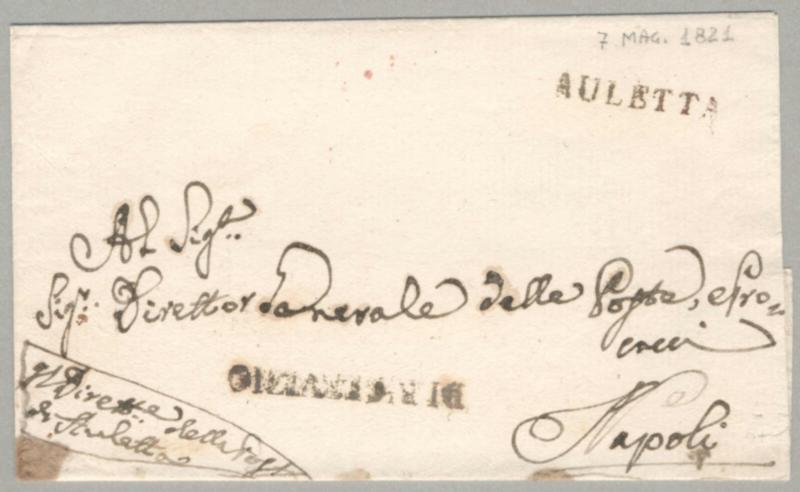 7 MAG. 1821
AULETTA
Al Sig.r
Sig.r Direttor Generale delle Poste, e Pro-
cacci
Napoli
Il Dirett.e delle Poste
di Auletta